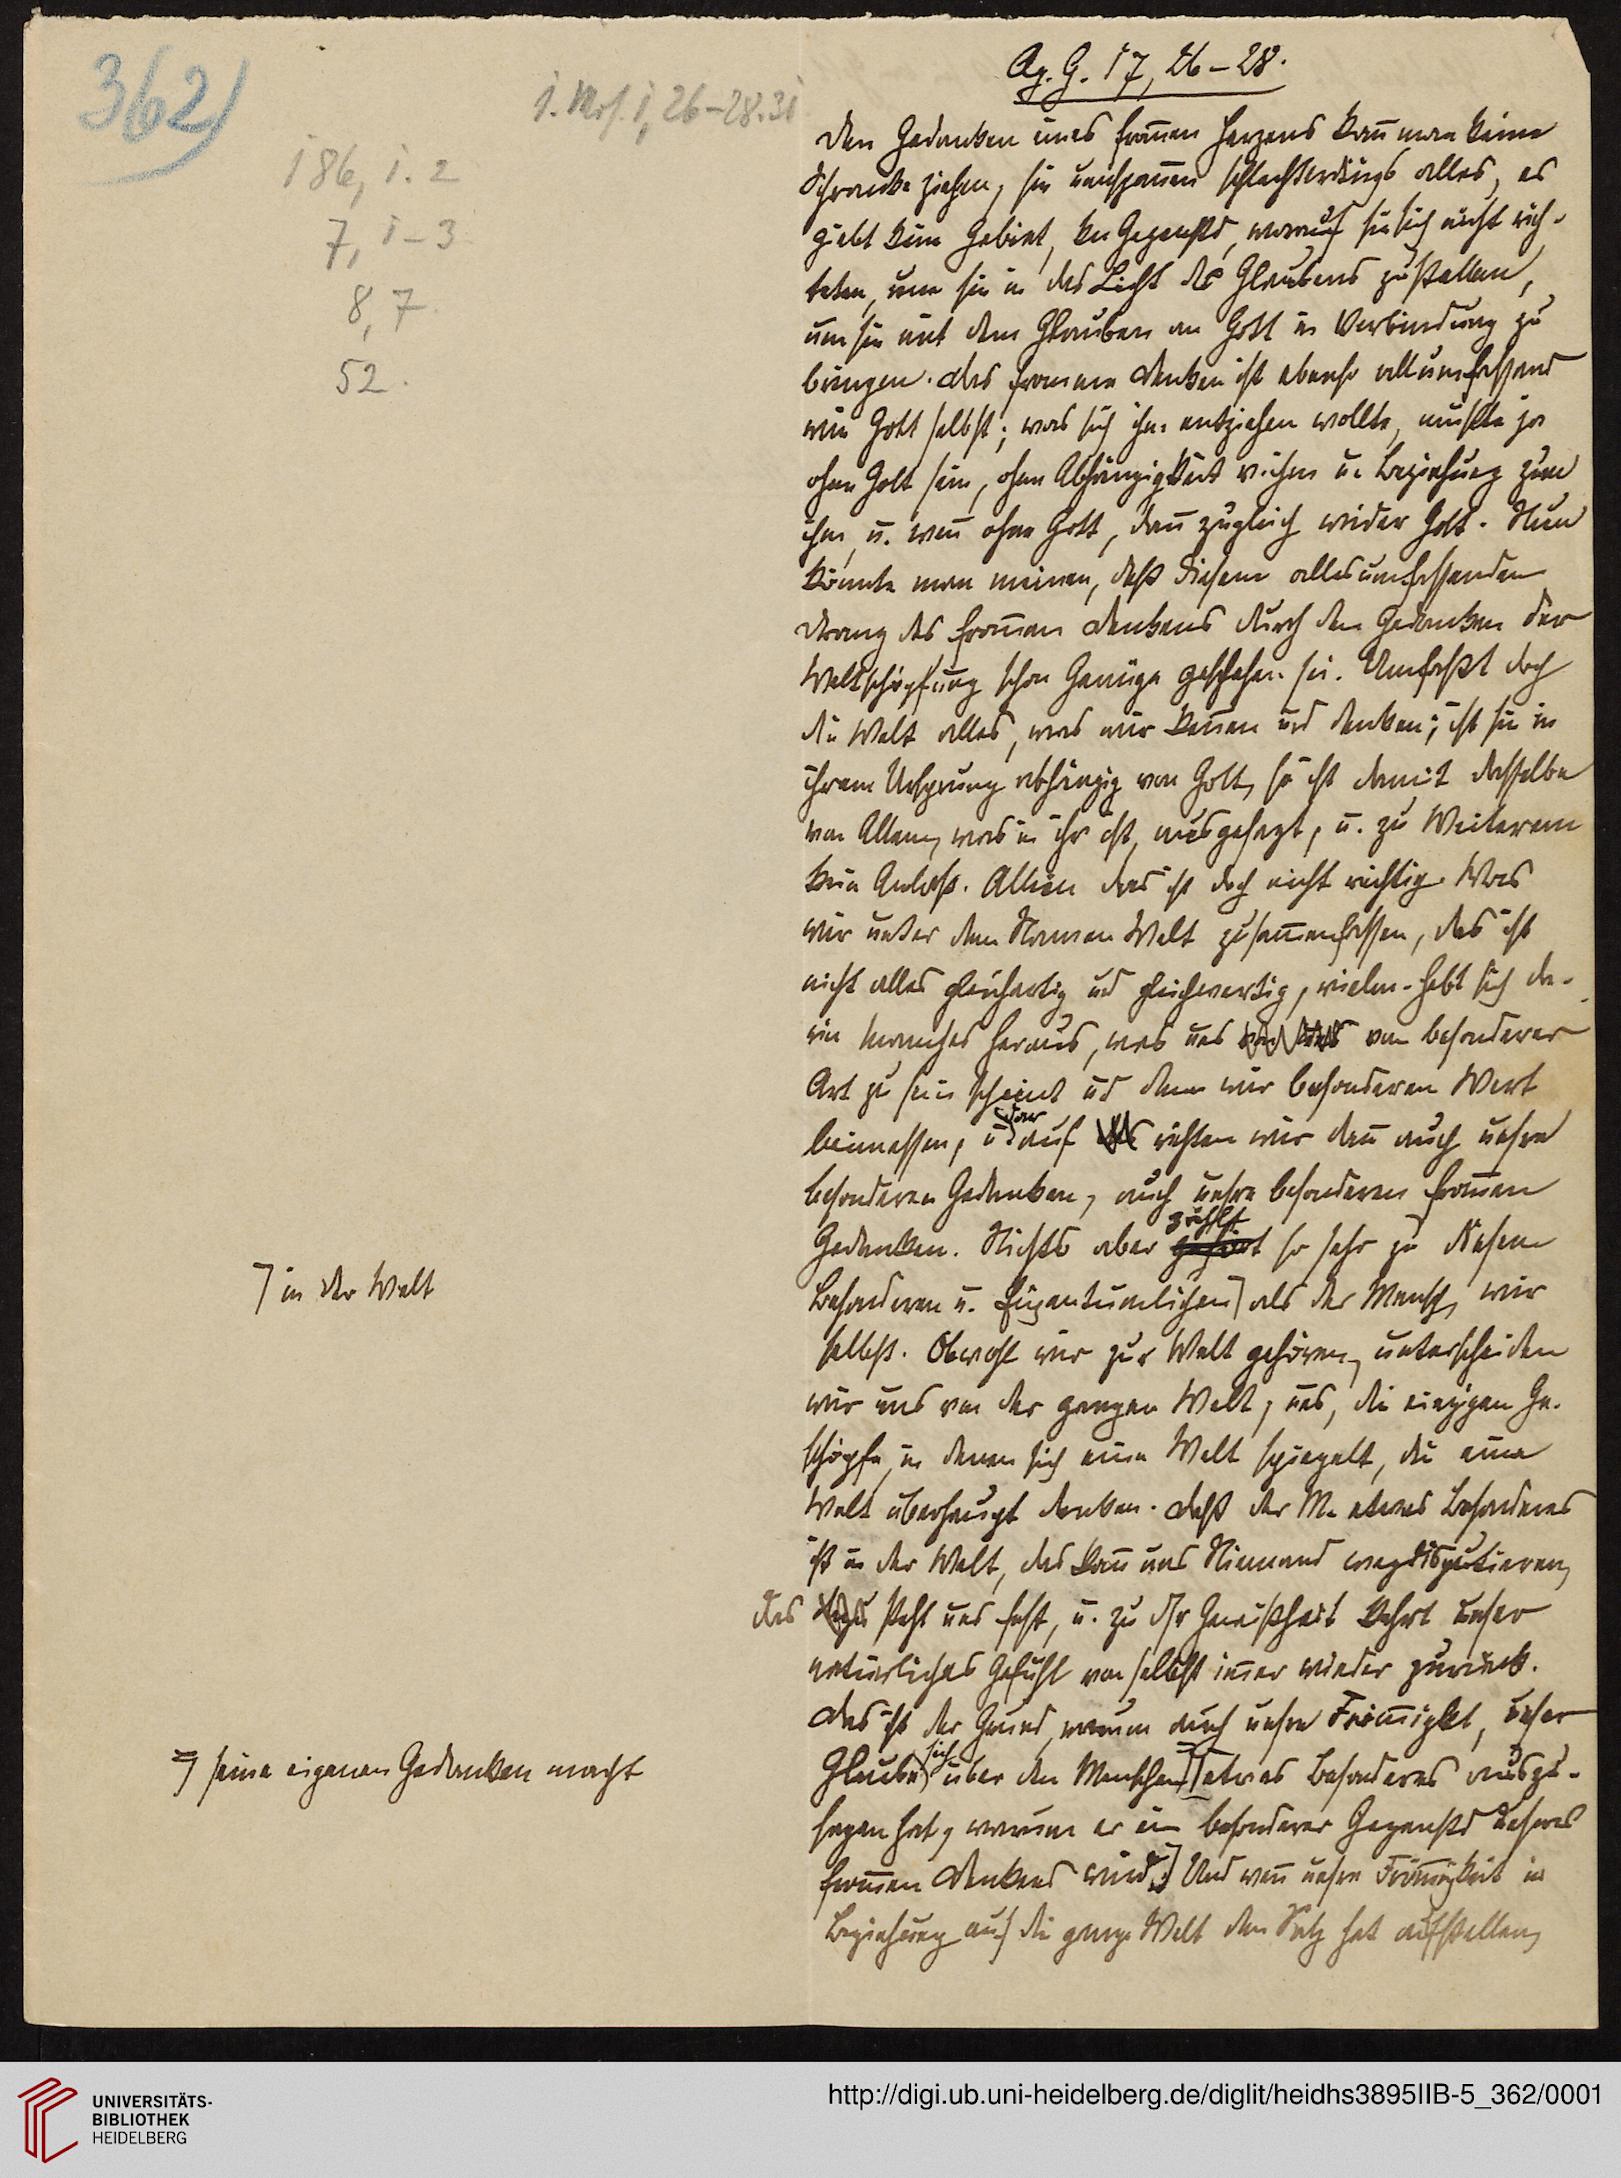 362)
1. Mos. 1, 26-28.31
186, 1. 2
7, 1-3
8, 7.
52.
Ag. G. 17, 26-28.
Den Gedanken eines from̅en Herzens kan̅ man keine
Schranke ziehen, sie umspan̅en schlechterdings alles, es
giebt kein Gebiet, kn Gegenstd, worauf sie sich nicht rich-
teten, um sie in das Licht des Glaubens zu stellen,
um sie mit dem Glauben an Gott in Verbindung zu
bringen. Das fromme Denken ist ebenso allumfassend
wie Gott selbst; was sich ihm entziehen wollte, müßte ja
ohne Gott sein, ohne Abhängigkeit v. ihm u. Beziehung zu
ihm, u. wen̅ ohne Gott, dan̅ zugleich wider Gott. Nun
könnte man meinen, daß diesem allesumfassenden
Drang des from̅en Denkens durch den Gedanken der
Weltschöpfung schon Genüge geschehen sei. Umfaßt doch
die Welt alles, was wir ken̅en und denken; ist sie in
ihrem Ursprung abhängig von Gott, so ist damit dasselbe
von Allem, was in ihr ist, ausgesagt, u. zu Weiterem
kein Anlaß. Allein das ist doch nicht richtig. Was
wir unter dem Namen Welt zusam̅enfassen, das ist
nicht alles gleichartig und gleichwertig, vielm. hebt sich da-
rin manches heraus, was uns von besonderer
Art zu sein scheint ud dem wir besonderen Wert
beimessen, u dar auf richten wir dan̅ auch unsre
besonderen Gedanken, auch unsre besonderen from̅en
Gedanken. Nichts aber gehört zählt so sehr zu diesem
Besonderen u. Eigentümlichen ⌉ als der Mensch, wir
⌉ in der Welt
selbst. Obwohl wir zur Welt gehören, unterscheiden
wir uns von der ganzen Welt, uns, die einzigen Ge-
schöpfe, in denen sich eine Welt spiegelt, die eine
Welt überhaupt denken. Daß der M. etwas Besonderes
ist in der Welt, das kan̅ uns Niemand wegdisputieren,
das steht uns fest, u. zu dsr Gewißheit kehrt unser
natürliches Gefühl von selbst im̅er wieder zurück.
Das ist der Grund, warum auch unsre From̅igkt, unser
Glaube sich über den Menschen ⌉ etwas Besonderes auszu-
⌉ seine eigenen Gedanken macht
sagen hat, warum er ein besonderer Gegenstd unseres
from̅en Denkens wird.⌉ Und wen̅ unsre From̅igkeit in
Beziehung auf die ganze Welt den Satz hat aufstellen,
UNIVERSITÄTS-
BIBLIOTHEK
HEIDELBERG
http://digi.ub.uni-heidelberg.de/diglit/heidhs3895IIB-5_362/0001